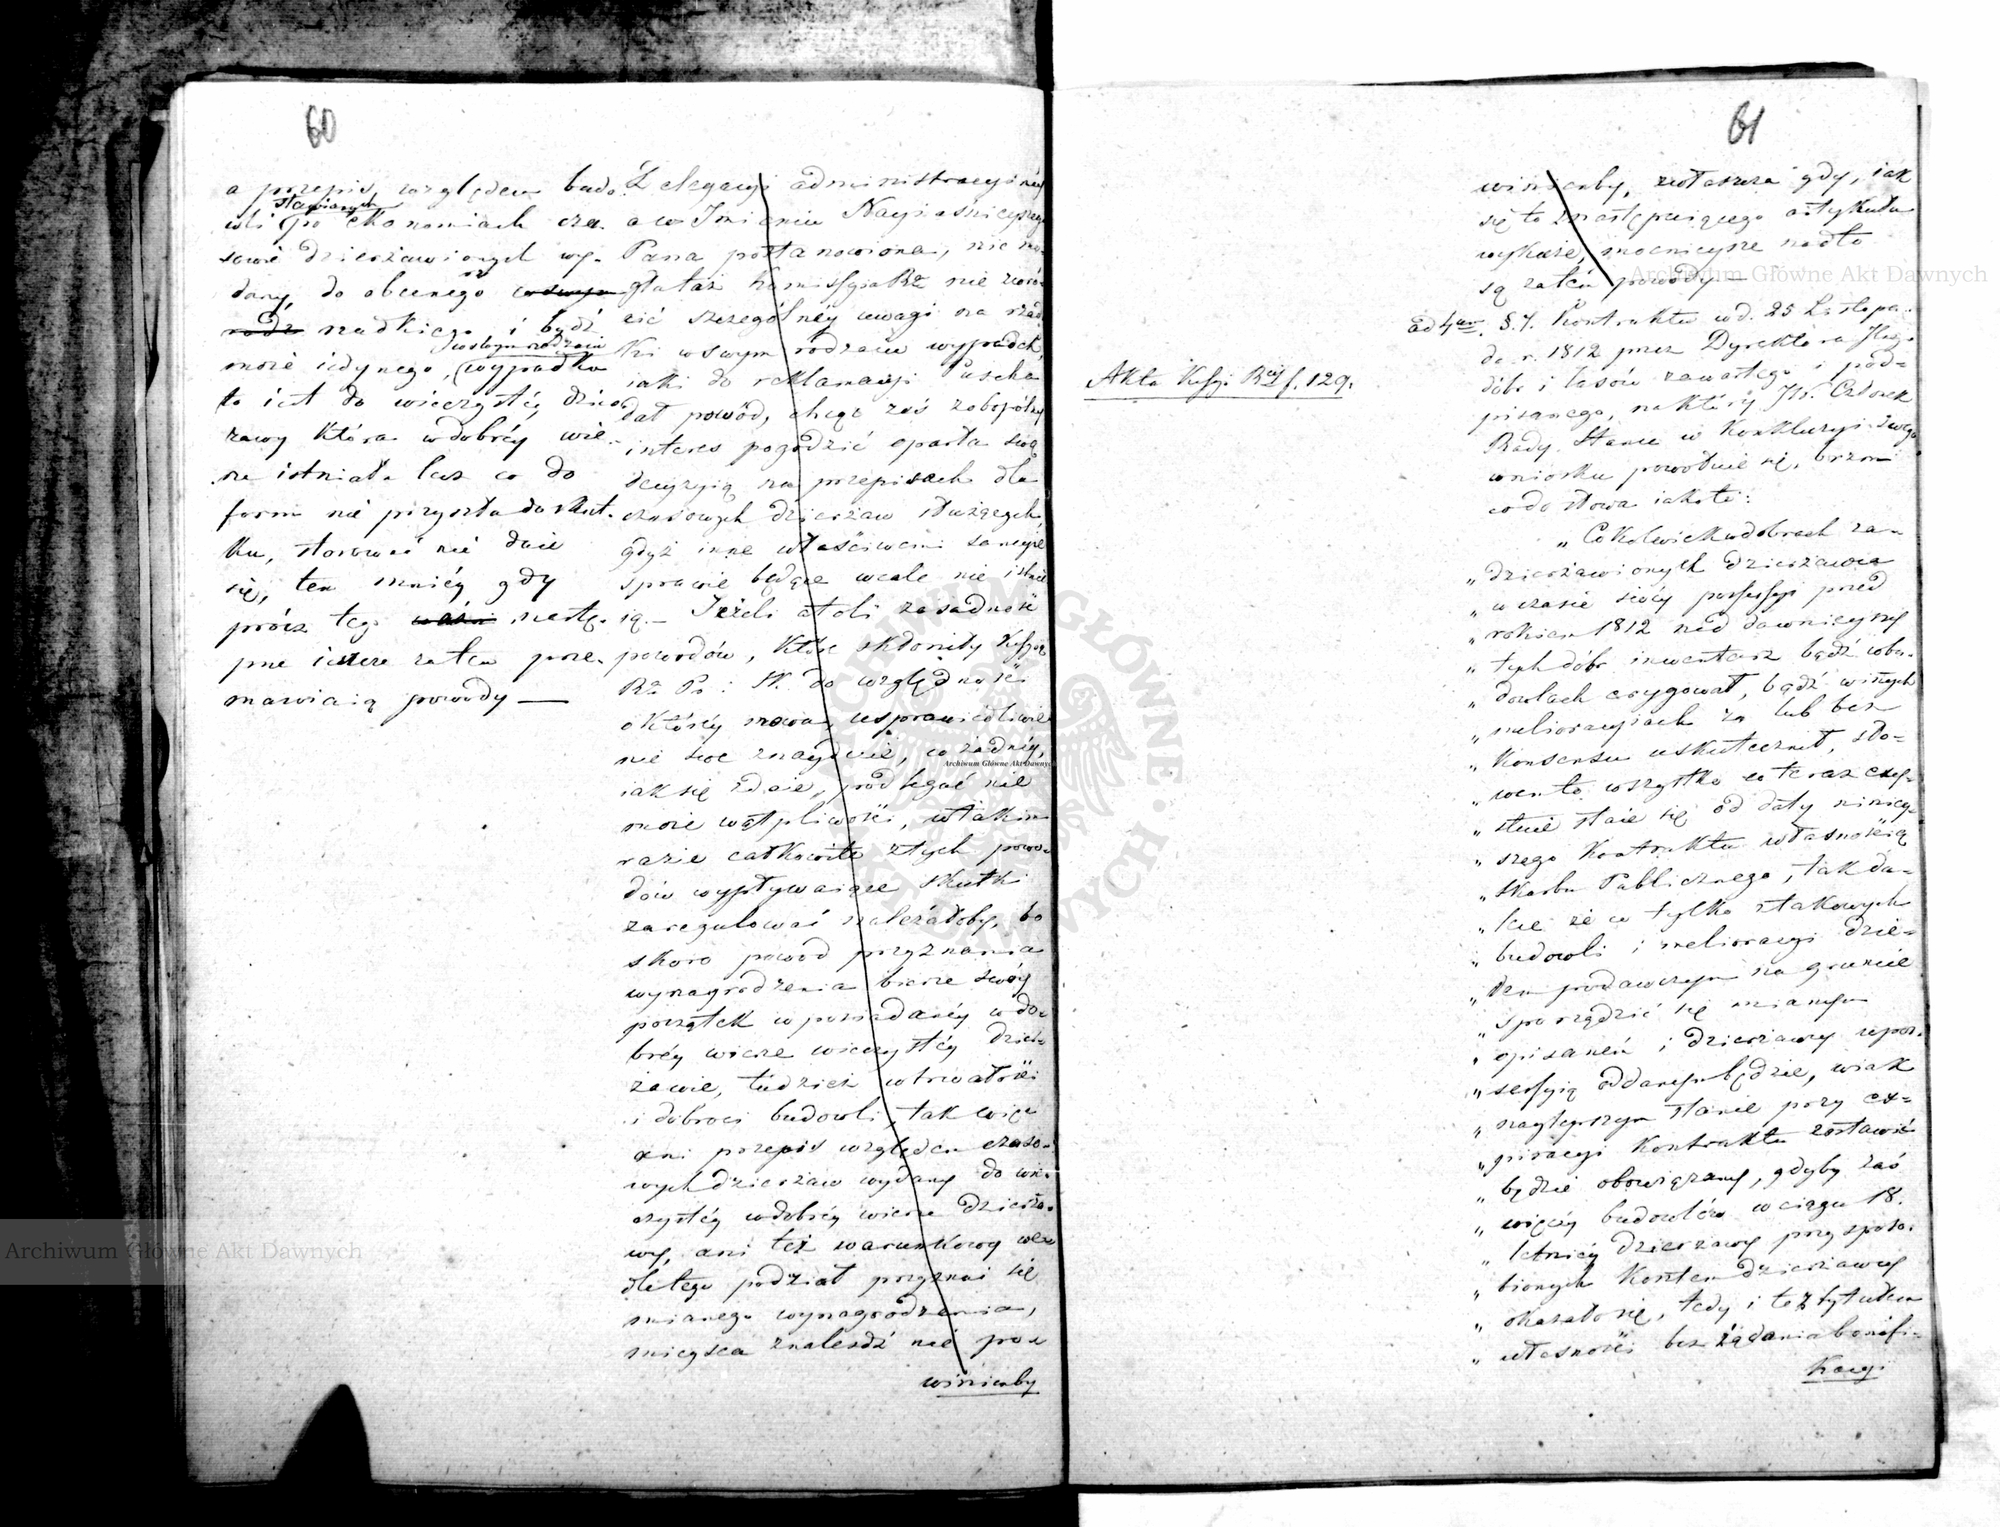 60
a przepis, względem budo-
wli stawianych po ekonomiach cza-
sowie dzierżawionych wy-
dany, do obecnego
rzadkiego, i bydź
może iedynego, w swym rodzaiu wypadku
to iest do wieczystéy dzier-
żawy która w dobréy wie-
rze istniała lecz co do
form nie przyszła do skut-
ku, stosować nie daie
się, tem mniéy gdy
prócz tego nastę-
pne ieszcze zatem prze-
mawiaią powody —
Z elegacyi administracyinéy
a w Imieniu Nayiaśnieyszego
Pana postanowiona, nie mo-
głateż Kommissya Rz nie zwró-
cić szczególnéy uwagi na rzad-
ki w swym rodzaiu wypadek,
iaki do reklamacyi Puscha
dał powód, chcąc zaś zobopólny
interes pogodzić oparła swą
decyzyią na przepisach dla
czasowych dzierżaw służących,
gdyż inne właściwemi saméyże
sprawie będące wcale nie istnie
ią. — Jeżeli atoli zasadność
powodów, które skłoniły Kssyą
Rz Pr: Sk. do względności
o któréy mowa, usprawiedliwie
nie swe znaydzie, co żadnéy,
iak się zdaie, podlegać nie
może wątpliwości, w takim
razie całkowite z tych powo-
dów wypływaiące skutki
zaregulować należałoby, bo
skoro powód przyznania
wynagrodzenia bierze swóy
początek w posiadanéy w do-
bréy wierze wieczystéy dzier-
żawie, tudzież w trwałości
i dobroci budowli, tak więc
ani przepis względem czaso-
wych dzierżaw wydany do wie-
czystéy w dobréy wierze dzierża-
wy, ani też warunkowy we-
dle tego podział przyznać się
mianego wynagrodzenia,
mieysca znaleśdź nie po-
winienby
61
winienby, zwłaszcza gdy, iak
się to z następuiącego artykułu
wykaże, mocnieysze nadto
są zatem powody —
Akta Kssyi Rzéy f. 129.
ad 4um. §. 7. Kontraktu w d. 25 Listopa-
da r. 1812 przez Dyrektora Jlnego
dóbr i lasów zawartego i pod-
pisanego, na który JW. Członek
Rady Stanu w Konkluzyi swego
wniosku powołuie się, brzmi
co do słowa iak to:
„ Cokolwiek w dobrach za-
„ dzierżawionych dzierżawca
„ w czasie swéy possessyi przed
„ rokiem 1812 nad dawnieyszy
„ tych dóbr inwentarz bądź w bu-
„ dowlach erygował, bądź w innych
„ melioracyiach za lub bez
„ Konsensu uskutecznił, sło-
„ wem to wszystko co teraz exy-
„ stuie staie się od daty niniey-
„ szego Kontraktu własnością
„ Skarbu Publicznego, tak da-
„ lece że co tylko z takowych
„ budowli i melioracyi dzie-
„ łem podawczym na gruncie
„ sporządzić się mianym
„ opisanem i dzierżawcy w pos-
„ sessyią oddanym będzie, w iak
„ naylepszym stanie przy ex-
„ piracyi Kontraktu zostawić
„ będzie obowiązany, gdyby zaś
„ więcéy budowlów w ciągu 18.
„ letniéy dzierżawy przysposo-
„ bionych kosztem dzierżawcy
„ okazało się, tedy i te z tytułem
„ własności bez żądania bonifi-
kacyi
Archiwum Główne Akt Dawnych
Archiwum Główne Akt Dawnych
Archiwum Główne Akt Dawnych